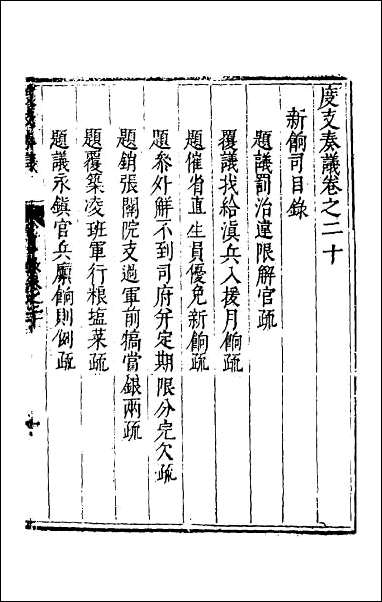 度支奏議卷之二十
新餉司目錄
題議罰治違限解官疏
覆議找給滇兵入援月餉疏
題催省直生員優免新餉疏
題叅外解不到司府分定期限分完欠疏
題銷張閣院支過軍前犒賞銀兩疏
題覆築凌班軍行粮塩菜疏
題議永鎮官兵廩餉則例疏